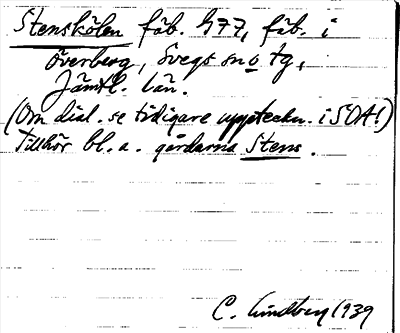 Stenskölen fäb. G77, fäb. i
Överberg, Svegs sn o tg,
Jämtl. län.
(Om dial. se tidigare uppteckn. i SOA!)
Tillhör bl. a. gårdarna Stens.
C. Lindberg 1939